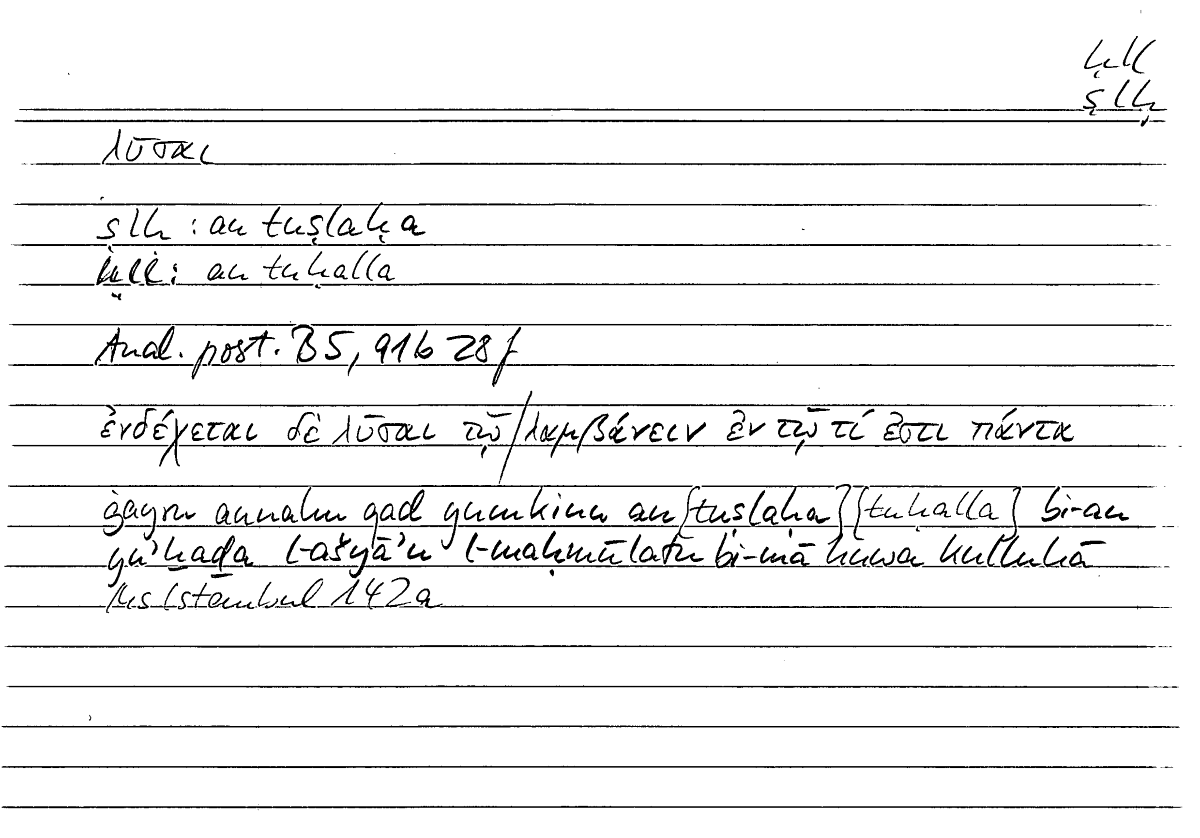 ḥll
ṣlḥ
λῦσαι
ṣlḥ : an tuṣlaḥa
ḥll : an tuḥalla
Anal. post. B5, 91b 28f
ἐνδέχεται δὲ λῦσαι τῷ/λαμβάνειν ἐν τῷ τί ἐστι πάντα
ġayru annahu qad yumkinu an [tuṣlaḥa] [tuḥalla] bi-an
yu’ḫaḏa l-ašyā’u l-maḥmūlatu bi-mā huwa kulluhā
Hs Istanbul 142a